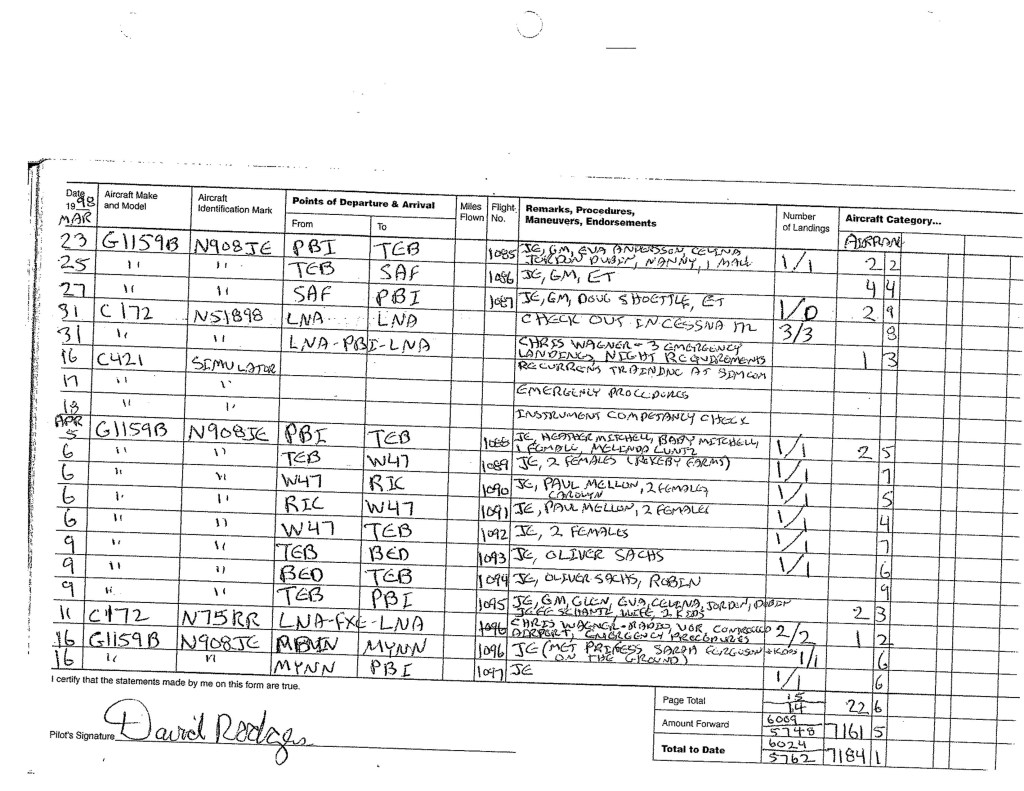 Date 1998 Aircraft Make and Model Aircraft Identification Mark Points of Departure & Arrival Miles Flown Flight No. Remarks, Procedures, Maneuvers, Endorsements Number of Landings Aircraft Category...
MAR From To AIRPLAN
23 G1159B N908JE PBI TEB 1085 JE, GM, EVA ANDERSSON, CELINA 1/1 2 2
JORDON DUBIN, NANNY, 1 MALE
25 " " TEB SAF 1086 JE, GM, ET 4 4
27 " " SAF PBI 1087 JE, GM, DOUG SHOETTLE, ET 1/0 2 9
31 C172 N51898 LNA LNA CHECK OUT IN CESSNA 172 3/3 8
31 " " LNA-PBI-LNA CHRIS WAGNER - 3 EMERGENCY 1 3
LANDINGS, NIGHT REQUIREMENTS
16 C421 SIMULATOR RECURRENT TRAINING AT SIMCOM
17 " " EMERGENCY PROCEDURES
18 " " INSTRUMENT COMPETANCY CHECK
APR
5 G1159B N908JE PBI TEB 1088 JE, HEATHER MITCHELL, BABY MITCHELL, 1/1 2 5
1 FEMALE, MELINDA LUNTZ
6 " " TEB W47 1089 JE, 2 FEMALES (ROKEBY FARMS) 1/1 7
6 " " W47 RIC 1090 JE, PAUL MELLON, 2 FEMALES 1/1 5
CAROLYN
6 " " RIC W47 1091 JE, PAUL MELLON, 2 FEMALES 1/1 4
6 " " W47 TEB 1092 JE, 2 FEMALES 1/1 7
9 " " TEB BED 1093 JE, OLIVER SACHS 1/1 6
9 " " BED TEB 1094 JE, OLIVER SACHS, ROBIN 9
9 " " TEB PBI 1095 JE, GM, GLEN, EVA, CELINA, JORDON, DUBIN 2 3
JEFF SCHANTZ, WIFE, 2 KIDS
11 C172 N75RR LNA-FXE-LNA 1096 CHRIS WAGNER-RADIO VOR CONTROLLED 2/2 1 2
AIRPORT, EMERGENCY PROCEDURES
16 G1159B N908JE MYNN 1096 JE (MET PRINCESS SARAH FERGUSON + KIDS 1/1 6
ON THE GROUND)
16 " " MYNN PBI 1097 JE 1/1 6
I certify that the statements made by me on this form are true.
Page Total 15/14 22 6
Amount Forward 6009/5748 7161 5
Total to Date 6024/5762 7184 1
Pilot's Signature David Rodgers